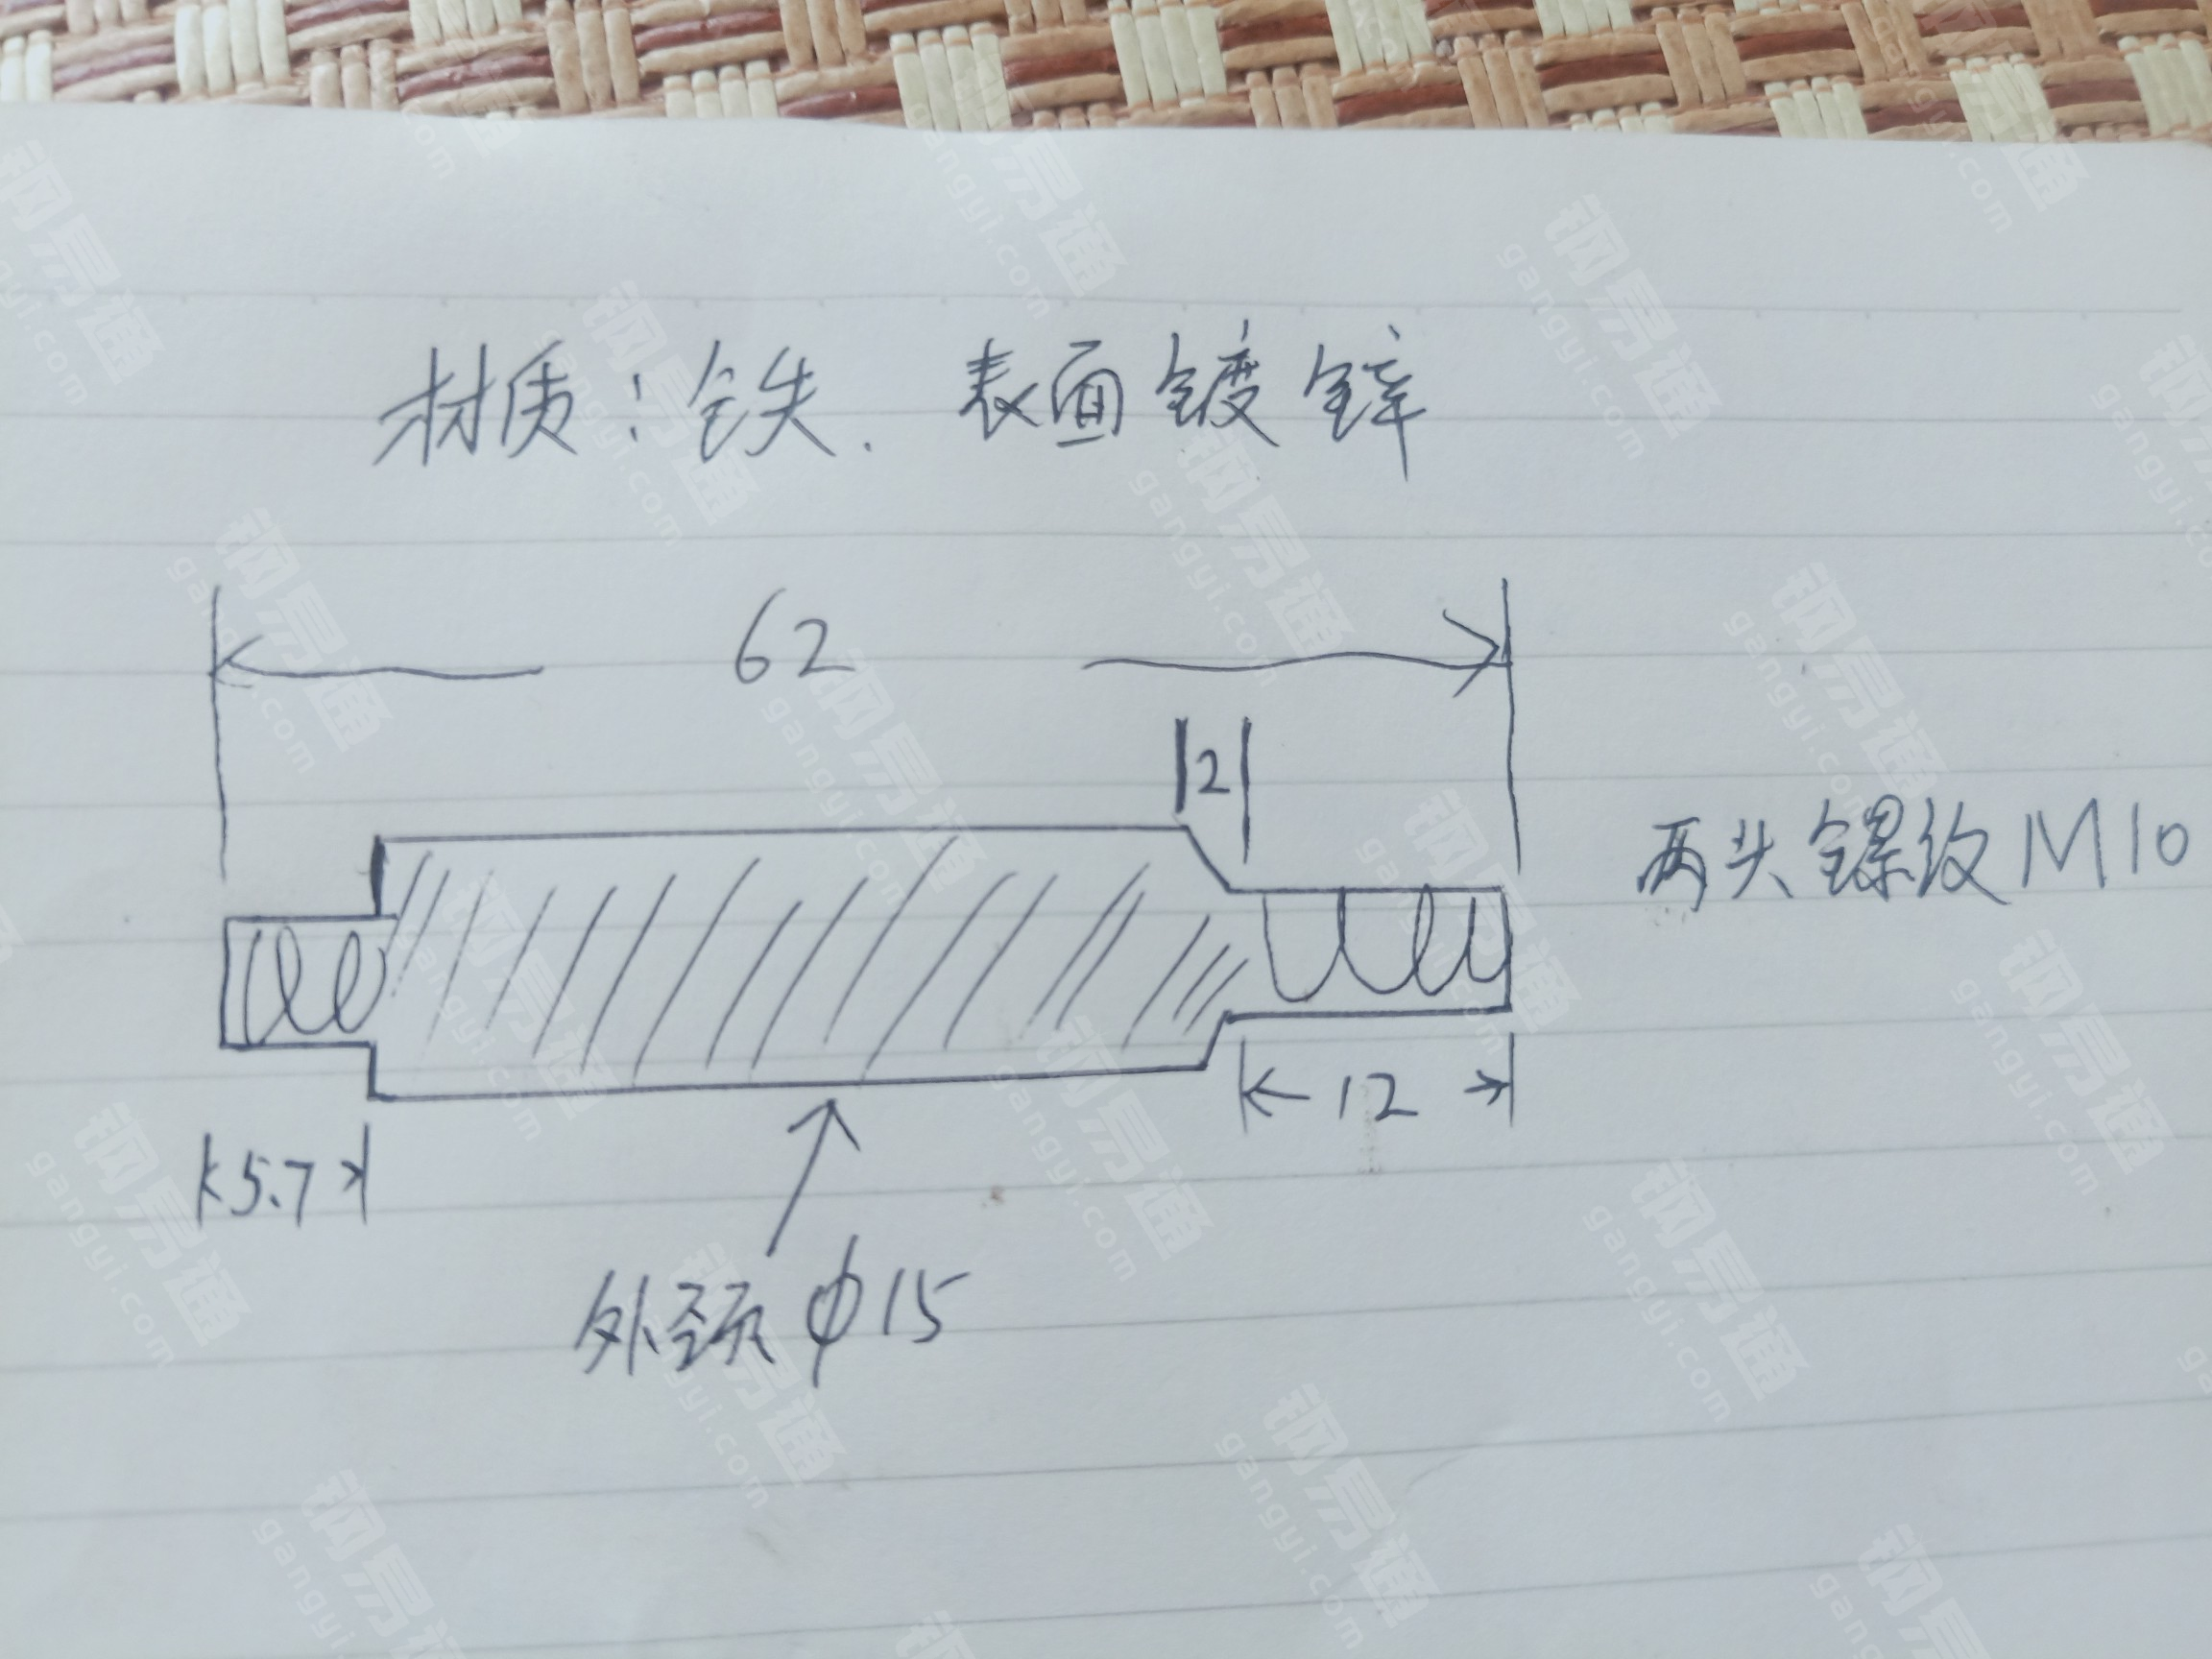 材质：铁．表面镀锌
62
2
两头螺纹M10
12
5.7
外颈φ15
钢易通
gangyi.com